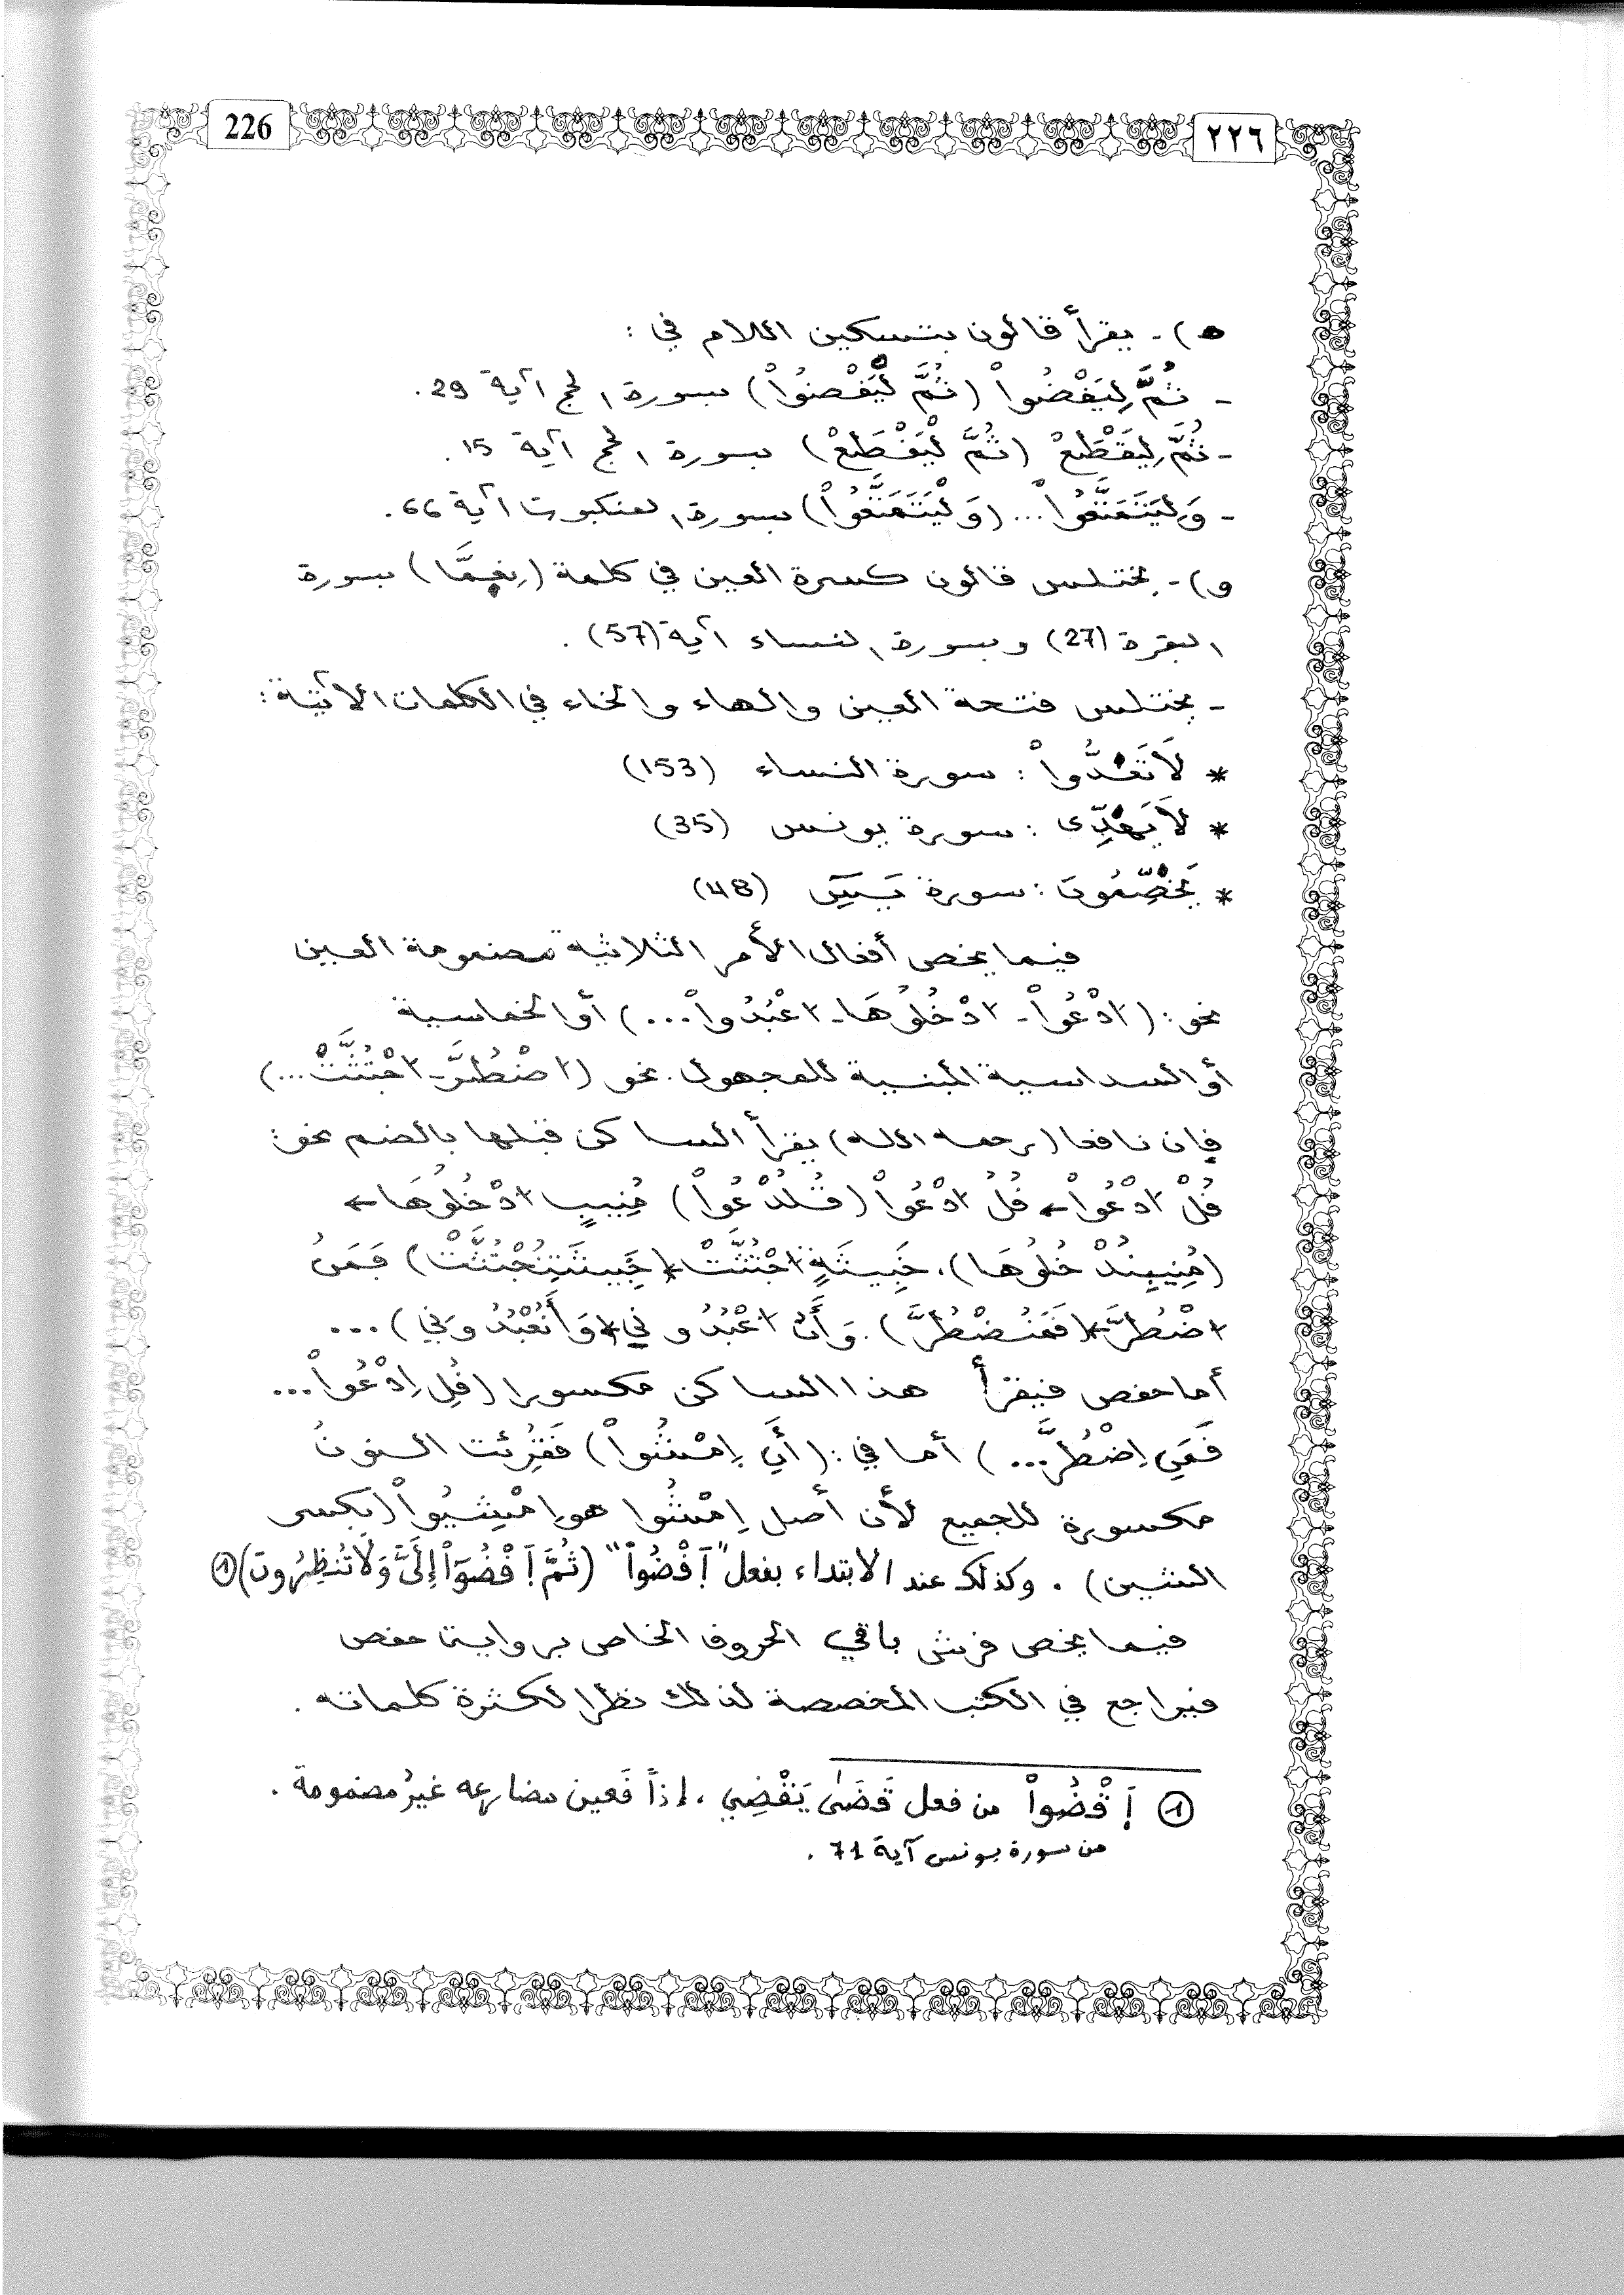 226
٢٢٦
ه) - يقرأ قالون بتسكين اللام في :
- ثُمَّ لِيَقْضُواْ (ثُمَّ لْيَقْضُواْ) بسورة الحج آية 29.
- ثُمَّ لِيَقْطَعْ (ثُمَّ لْيَقْطَعْ) بسورة الحج آية 15.
- وَلِيَتَمَتَّعُواْ... (وَلْيَتَمَتَّعُواْ) بسورة العنكبوت آية 66.
و) - يختلس قالون كسرة العين في كلمة (نِعِمَّا) بسورة
البقرة (27) وبسورة النساء آية (57).
- يختلس فتحة العين والهاء والخاء في الكلمات الآتية :
* لَا تَعَدُّواْ : سورة النساء (153)
* لَا يَهَدِّى : سورة يونس (35)
* يَخَصِّمُونَ : سورة يَسٓ (48)
فيما يخص أفعال الأمر الثلاثية مضمومة العين
نحو : (ادْعُواْ - ادْخُلُوهَا - اعْبُدُواْ...) أو الخماسية
أو السداسية المبنية للمجهول. نحو (اضْطُرَّ - اجْتُثَّتْ...)
فإن نافعا (رحمه الله) يقرأ الساكن قبلها بالضم نحو :
قُلْ ادْعُواْ ← قُلُ ادْعُواْ (قُلُدْعُواْ) مُنِيبٍ ادْخُلُوهَا ←
(مُنِيبِنُدْخُلُوهَا)، خَبِيثَةٍ اجْتُثَّتْ ← (خَبِيثَتِنُجْتُثَّتْ) فَمَنُ
اضْطُرَّ ← (فَمَنُضْطُرَّ). وَأَنُ اعْبُدُونِي ← (وَأَنُعْبُدُونِي)...
أما حفص فيقرأ هذا الساكن مكسورا (قُلِ اِدْعُواْ...
فَمَنِ اِضْطُرَّ...) أما في : (أَنِ اِمْشُواْ) فَقُرِئت النونُ
مكسورة للجميع لأن أصل اِمْشُوا هو اِمْشِيُواْ (بكسر
الشين). وكذلك عند الابتداء بفعل "اِقْضُواْ" (ثُمَّ اَقْضُوٓاْ إِلَىَّ وَلَا تُنظِرُونَ) ①
فيما يخص فرش باقي الحروف الخاص برواية حفص
فيراجع في الكتب المخصصة لذلك نظرا لكثرة كلماته.
① اِقْضُواْ من فعل قَضَىٰ يَقْضِي، إذاً فَعين مضارعه غيرُ مضمومة.
من سورة يونس آية 71.